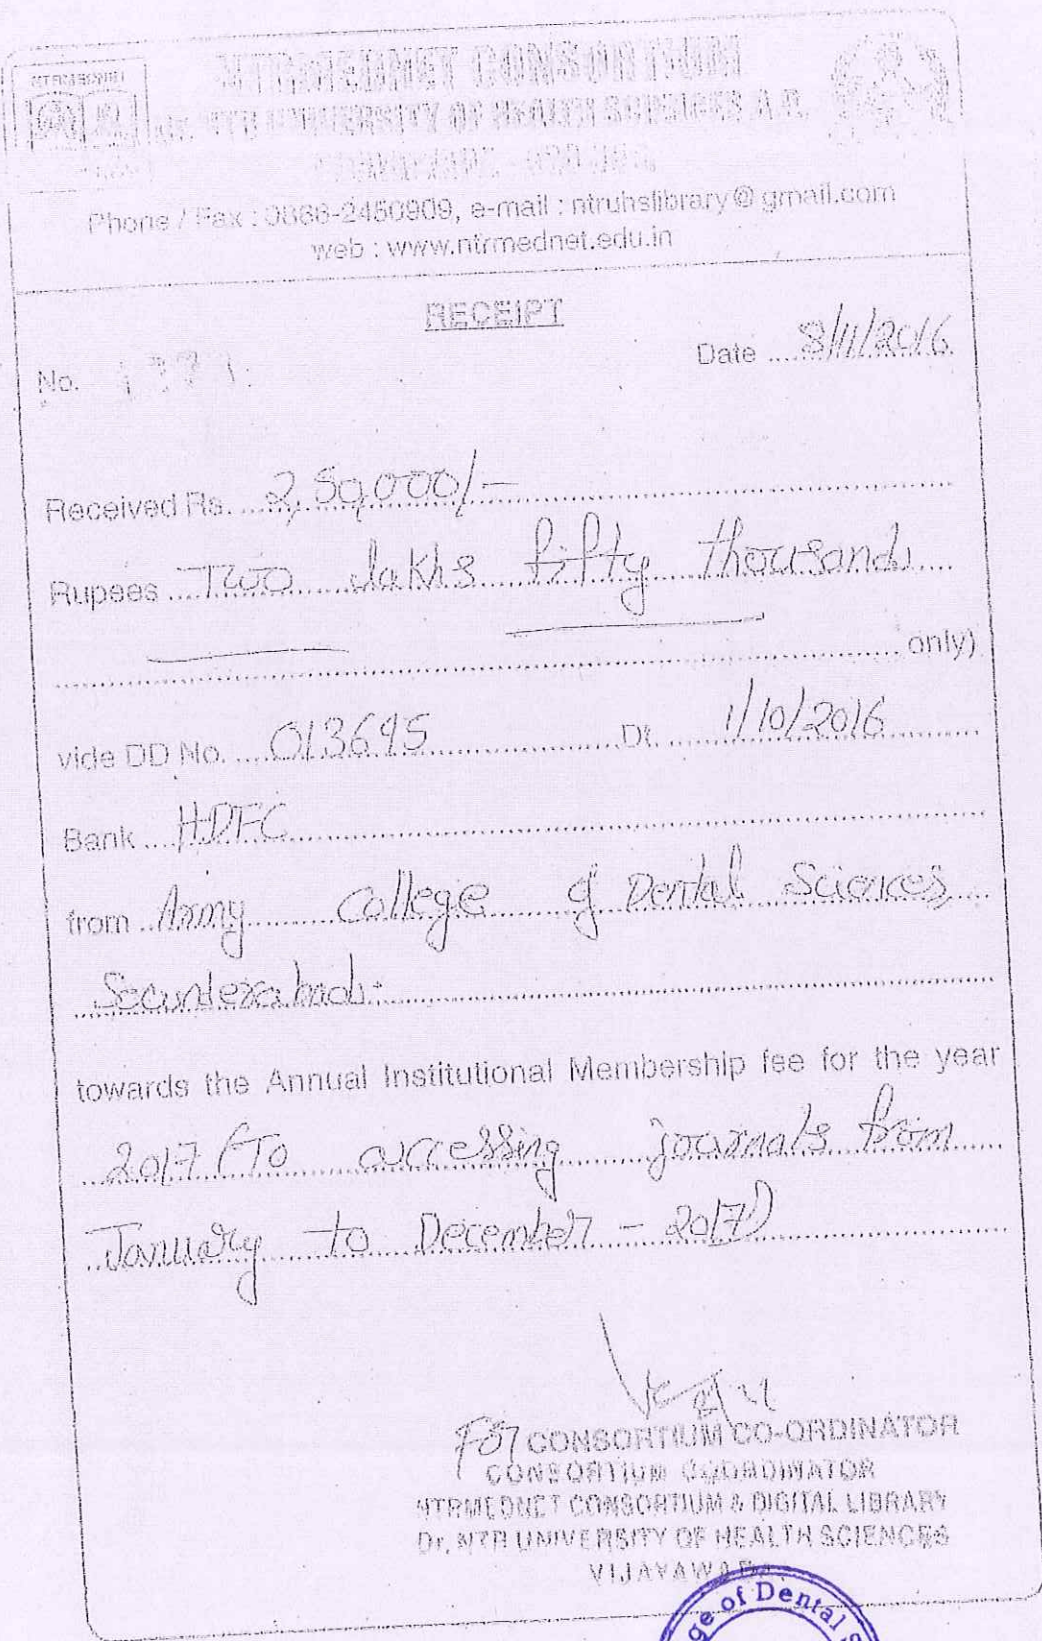 NTRMEDNET CONSORTIUM
UNIVERSITY OF HEALTH SCIENCES A.P.
Phone / Fax : 0866-2450909, e-mail : ntruhslibrary@gmail.com
web : www.ntrmednet.edu.in
RECEIPT
No. Date 8/11/2016
Received Rs. 2,50,000/-
Rupees Two lakhs fifty thousands
only)
vide DD No. 013695 Dt. 1/10/2016
Bank HDFC
from Army College of Dental Sciences,
Secunderabad.
towards the Annual Institutional Membership fee for the year
2017 (To accessing journals from
January to December - 2017)
For CONSORTIUM CO-ORDINATOR
CONSORTIUM COORDINATOR
NTRMEDNET CONSORTIUM & DIGITAL LIBRARY
Dr. NTR UNIVERSITY OF HEALTH SCIENCES
VIJAYAWADA
ge of Dental S